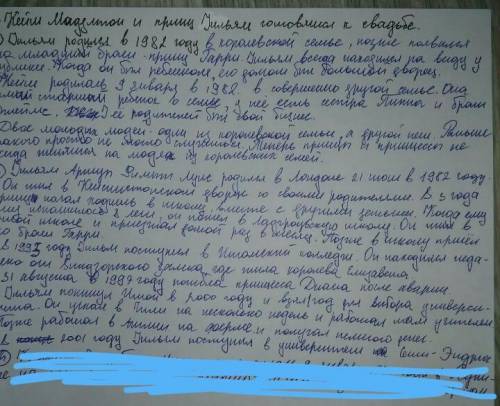 Кейт Миддлтон и принц Уильям готовились к свадьбе.
Уильям родился в 1982 году в королевской семье, позже появился
младший брат - принц Гарри. Уильям всегда находился на виду у
публики. Когда он был ребенком, его домом был большой дворец.
Кейт родилась 9 января в 1982 в совершенно другой семье. Она
самый старший ребенок в семье, у нее есть сестра Пиппа и брат
Джеймс. Её родителей был свой бизнес.
Двое молодых людей - один из королевской семьи, а другой нет. Раньше
такого просто не могло случиться. Теперь принцы и принцессы не
всегда женятся на людях из королевских семей.
Уильям Артур Филипп Луис родился в Лондоне 21 июня в 1982 году
Он жил в Кенсингтонском дворце со своими родителями. В 3 года
принц начал ходить в школу вместе с другими детьми. Когда ему
исполнилось 8 лет, он пошел в Ладгроувскую школу. Он жил в
этой школе и приезжал домой раз в месяц. Позже в школу пришел
его брат Гарри.
В 1995 году Уильям поступил в Итонский колледж. Он находился неда-
леко от Виндзорского замка, где жила королева Елизавета.
31 августа в 1997 году погибла принцесса Диана после аварии.
Уильям покинул Итон в 2000 году и взял год для выбора универси-
тета. Он уехал в Чили на несколько недель и работал там учителем
Позже работал в Англии на ферме и получал немного денег.
В 2001 году Уильям поступил в университет Сент-Эндрюс